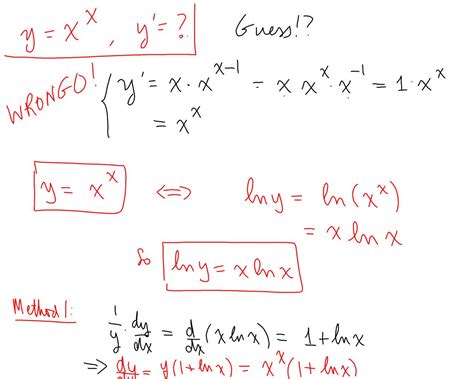 y = x^x , y' = ? Guess!?
WRONGO! { y' = x · x^{x-1} = x x^x · x^{-1} = 1 · x^x
= x^x
y = x^x <=> ln y = ln(x^x)
= x ln x
So ln y = x ln x
Method 1: 1/y · dy/dx = d/dx (x ln x) = 1 + ln x
=> dy/dx = y(1 + ln x) = x^x (1 + ln x)